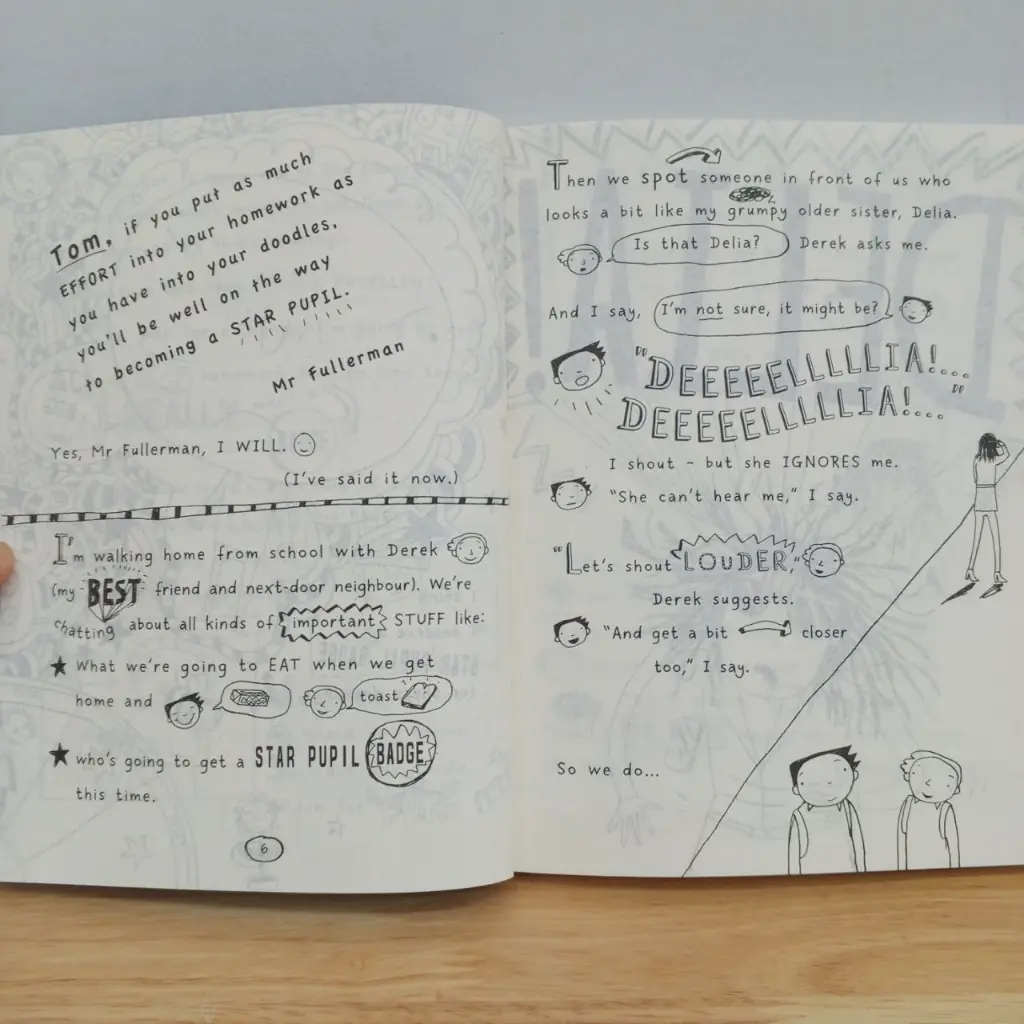 Tom, if you put as much
EFFORT into your homework as
you have into your doodles,
you'll be well on the way
to becoming a STAR PUPIL.
Mr Fullerman
Yes, Mr Fullerman, I WILL.
(I've said it now.)
I'm walking home from school with Derek
(my BEST friend and next-door neighbour). We're
chatting about all kinds of important STUFF like:
★ What we're going to EAT when we get
home and toast
★ who's going to get a STAR PUPIL BADGE
this time.
6
Then we spot someone in front of us who
looks a bit like my grumpy older sister, Delia.
Is that Delia? Derek asks me.
And I say, I'm not sure, it might be?
"DEEEEELLLLLIA!....
DEEEEELLLLLIA!...."
I shout - but she IGNORES me.
"She can't hear me," I say.
"Let's shout LOUDER,"
Derek suggests.
"And get a bit closer
too," I say.
So we do...